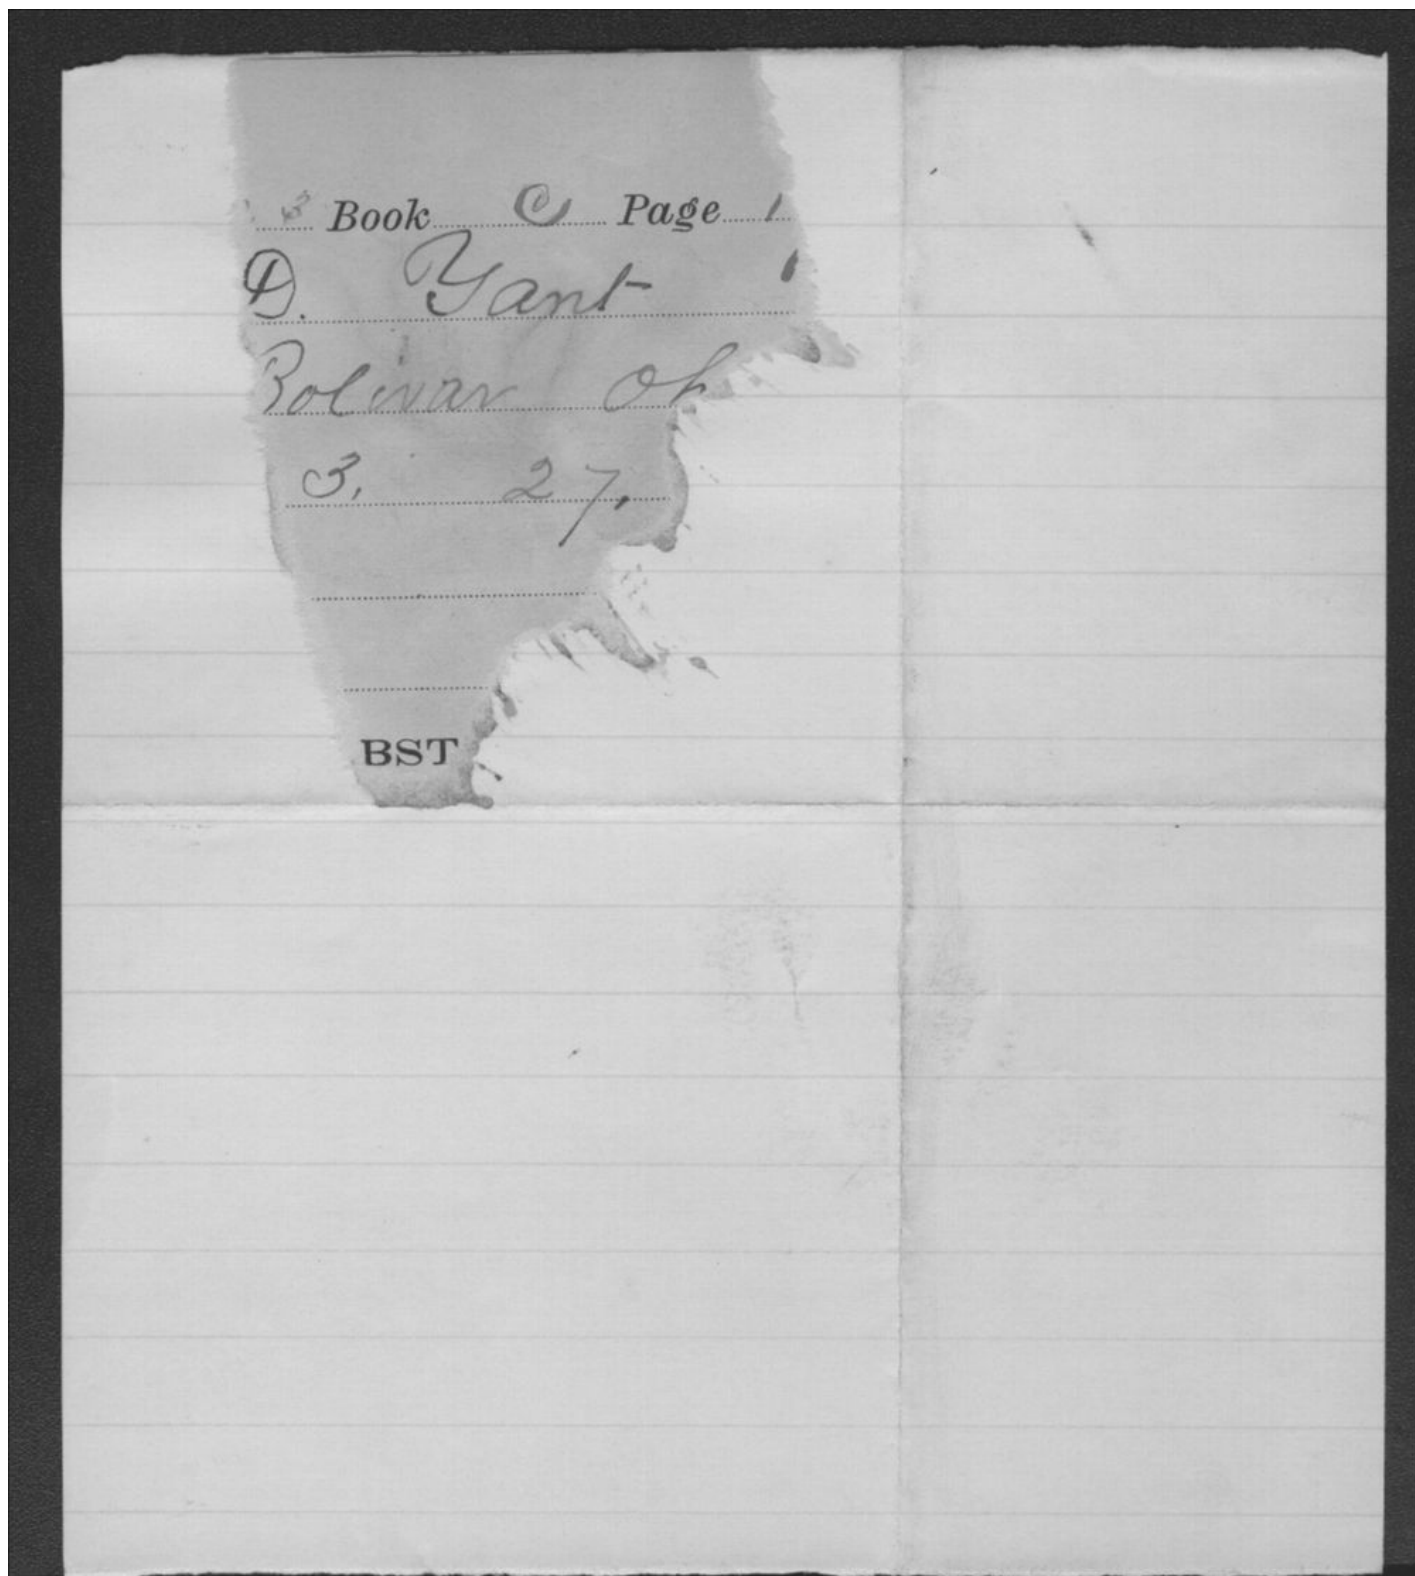 3 Book C Page 1
D. Yant
Bolivar Oh
3. 27.
BST